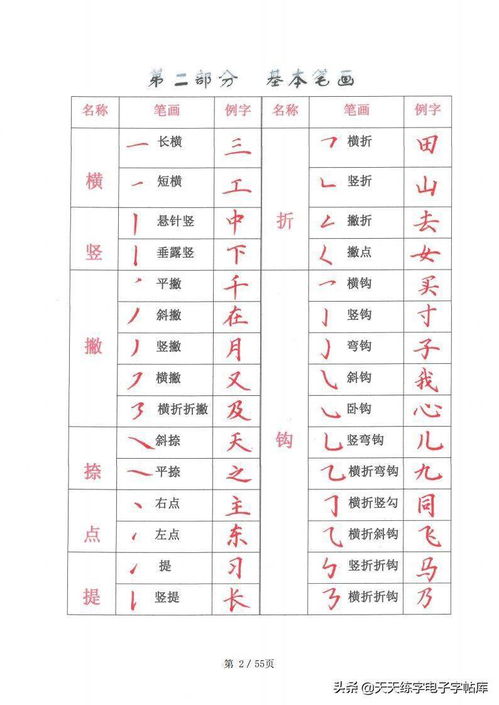 第二部分 基本笔画
名称 笔画 例字 名称 笔画 例字
横 ㇐ 长横 三
㇐ 短横 工
竖 丨 悬针竖 中
丨 垂露竖 下
撇 ㇒ 平撇 千
丿 斜撇 在
丿 竖撇 月
㇇ 横撇 又
㇋ 横折折撇 及
捺 ㇏ 斜捺 天
㇏ 平捺 之
点 丶 右点 主
丶 左点 东
提 ㇀ 提 习
𠄌 竖提 长
折 ㇕ 横折 田
㇗ 竖折 山
㇜ 撇折 去
㇛ 撇点 女
钩 ㇖ 横钩 买
亅 竖钩 寸
㇁ 弯钩 子
㇂ 斜钩 我
㇃ 卧钩 心
乚 竖弯钩 儿
乙 横折弯钩 九
𠃌 横折竖勾 同
⺄ 横折斜钩 飞
㇉ 竖折折钩 马
㇡ 横折折钩 乃
第 2 / 55页
头条 @天天练字电子字帖库